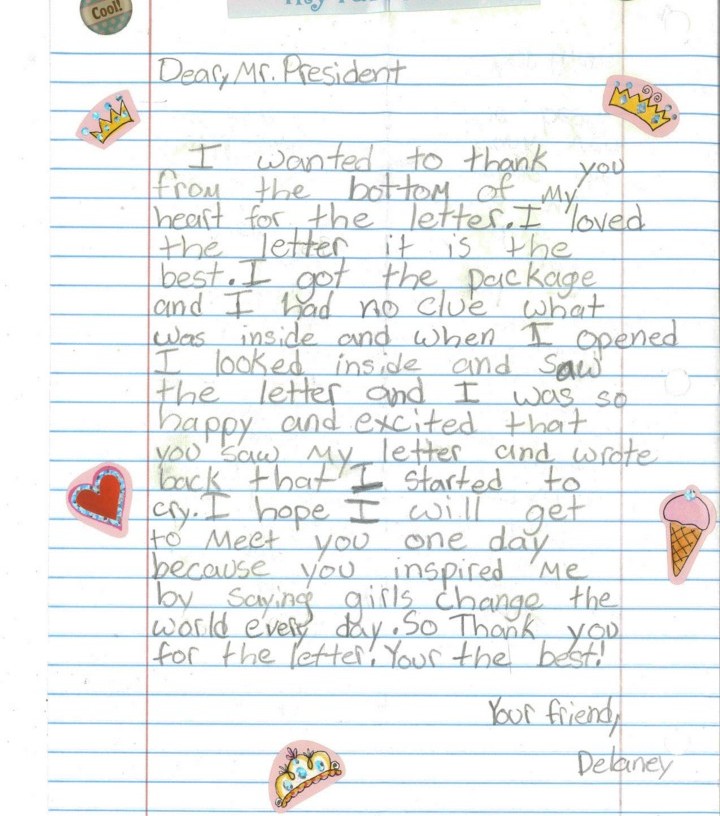 Cool!
Dear, Mr. President
I wanted to thank you
from the bottom of my
heart for the letter. I loved
the letter it is the
best. I got the package
and I had no clue what
was inside and when I opened
I looked inside and saw
the letter and I was so
happy and excited that
you saw my letter and wrote
back that I started to
cry. I hope I will get
to meet you one day
because you inspired me
by saying girls change the
world every day. So Thank you
for the letter. Your the best!
Your friend,
Delaney